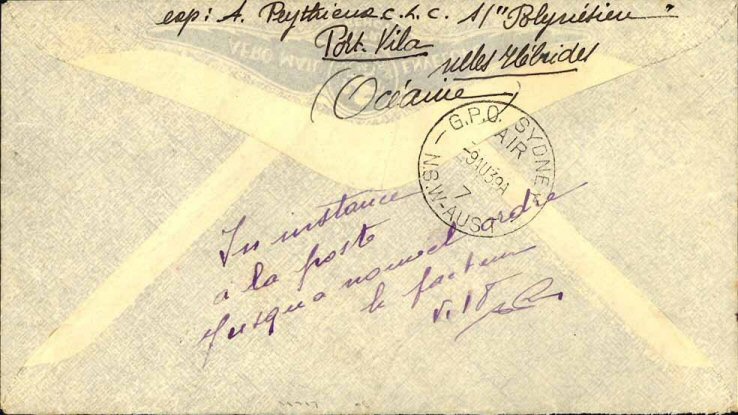 exp: A. Peythieux c.l.c. S/ "Polynésien"
Port-Vila
Nlles Hébrides
(Océanie)
AERO MAIL
G.P.O. SYDNEY
AIR
-9AU39A
7
N.S.W-AUST
En instance
à la poste
Jusqu'a nouvel ordre
le facteur